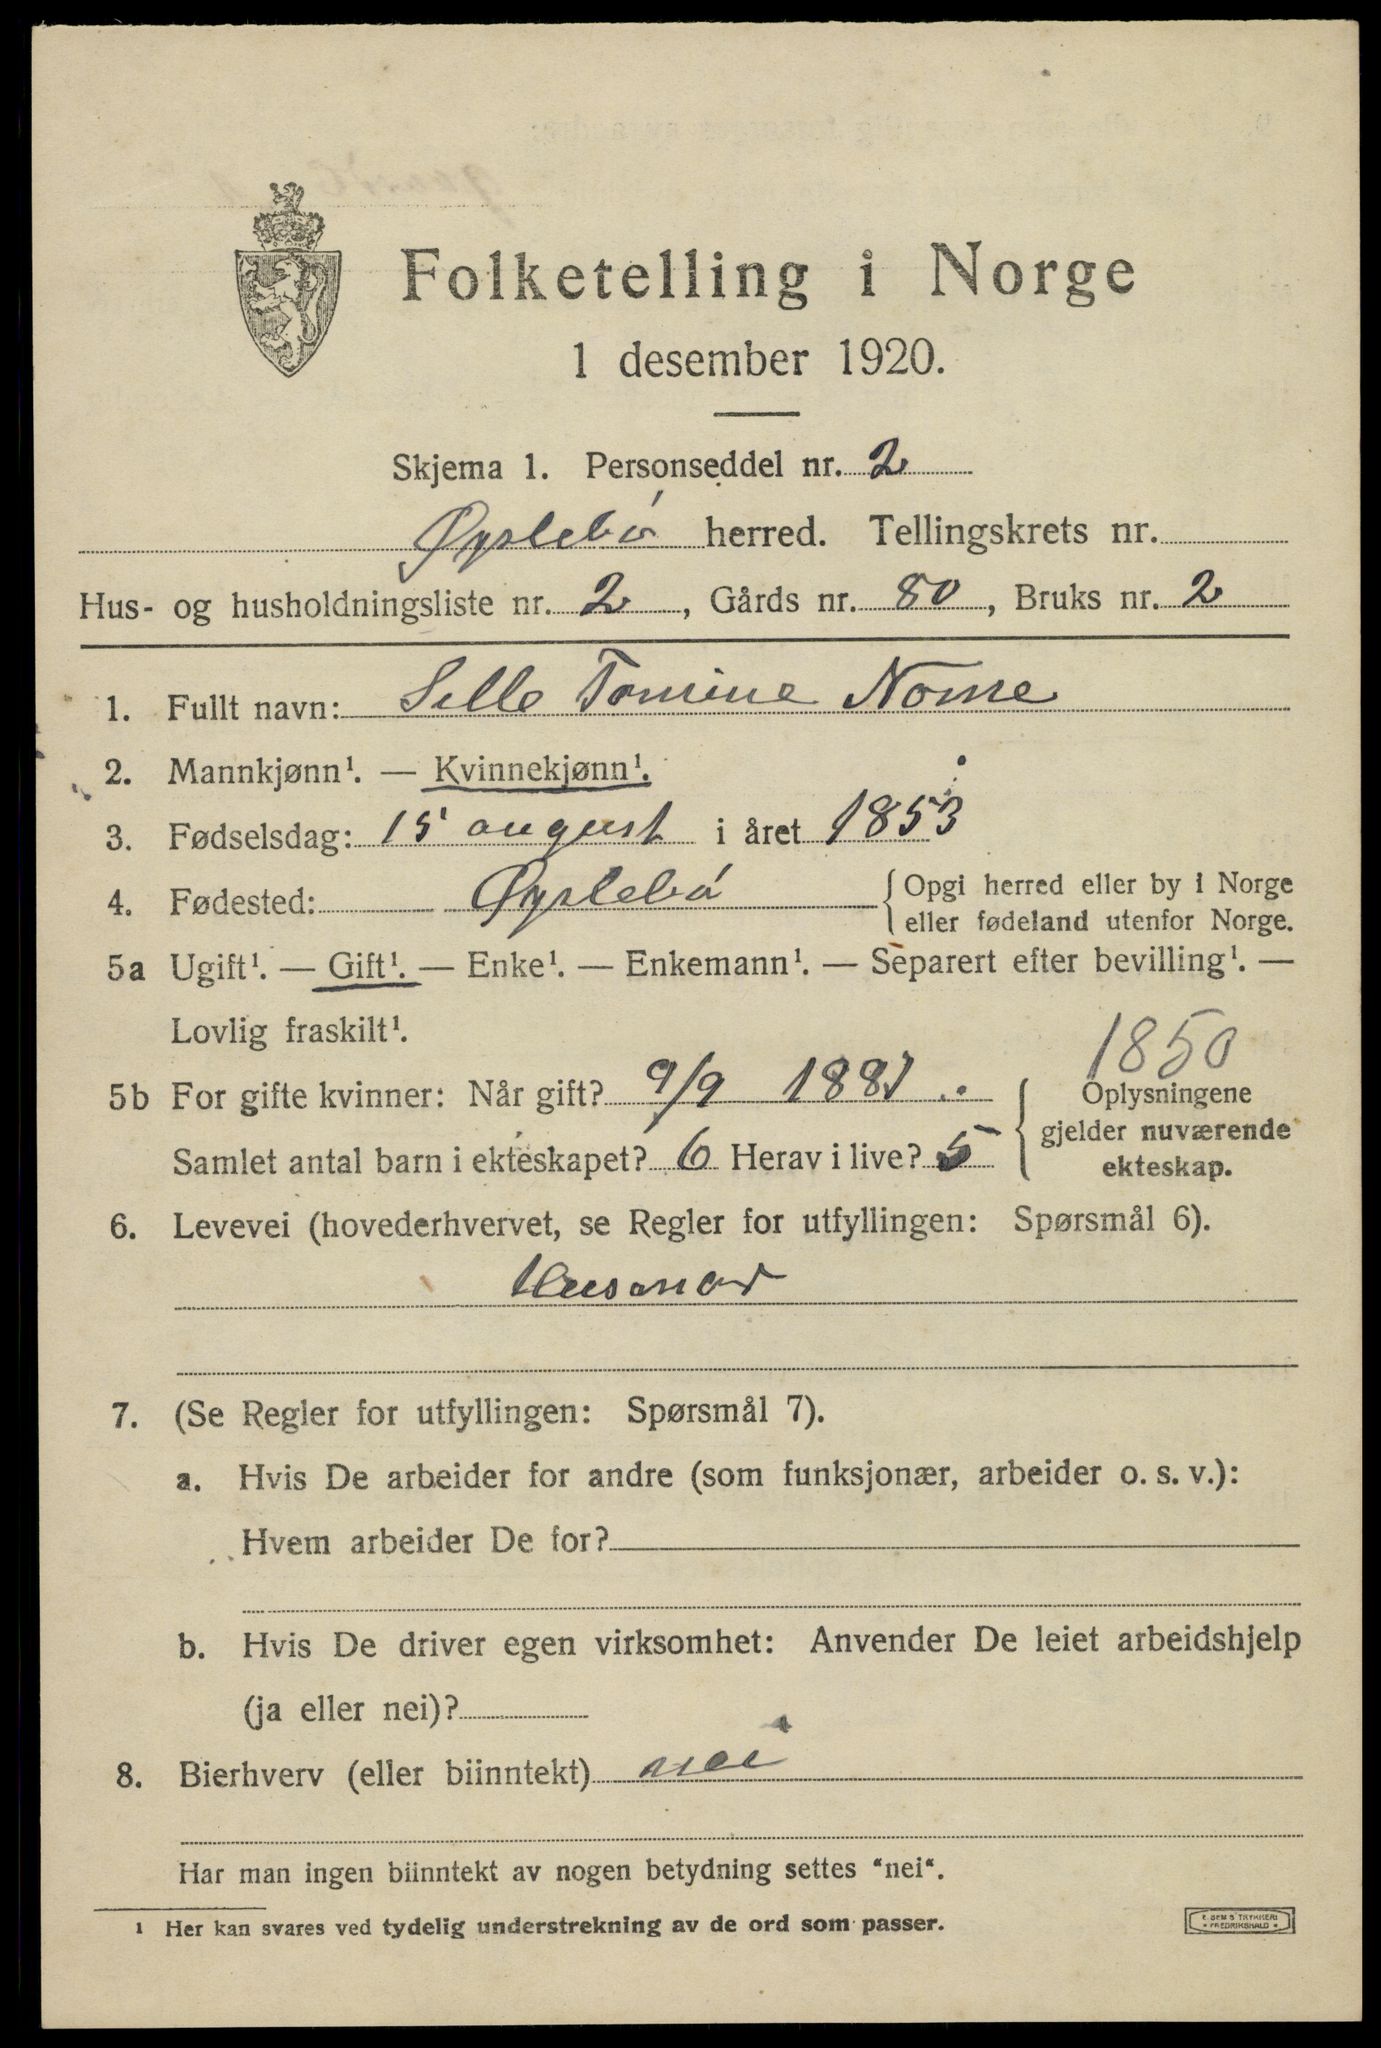 Folketelling i Norge
1 desember 1920.
Skjema 1. Personseddel nr. 2
Øyslebø herred. Tellingskrets nr.
Hus- og husholdningsliste nr. 2, Gårds nr. 80, Bruks nr. 2
1. Fullt navn: Sille Tomine Nome
2. Mannkjønn¹. — Kvinnekjønn¹.
3. Fødselsdag: 15 august i året 1853
4. Fødested: Øyslebø {Opgi herred eller by i Norge
eller fødeland utenfor Norge.
5a Ugift¹. — Gift¹. — Enke¹. — Enkemann¹. — Separert efter bevilling¹. —
Lovlig fraskilt¹.
1850
5b For gifte kvinner: Når gift? 9/9 1881 {Oplysningene
gjelder nuværende
Samlet antal barn i ekteskapet? 6 Herav i live? 5
ekteskap.
6. Levevei (hovederhvervet, se Regler for utfyllingen: Spørsmål 6).
Husmor
7. (Se Regler for utfyllingen: Spørsmål 7).
a. Hvis De arbeider for andre (som funksjonær, arbeider o. s. v.):
Hvem arbeider De for?
b. Hvis De driver egen virksomhet: Anvender De leiet arbeidshjelp
(ja eller nei)?
8. Bierhverv (eller biinntekt) nei
Har man ingen biinntekt av nogen betydning settes "nei".
¹ Her kan svares ved tydelig understrekning av de ord som passer.